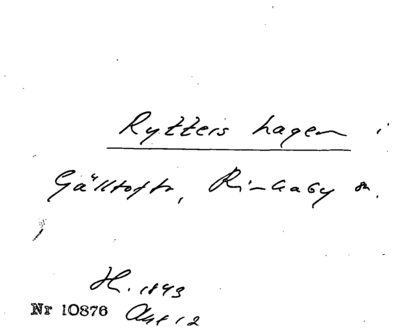 Rytters hagen i
Gälltofta, Rinkaby sn.
H. 1843
Nr 10876 Akt 12